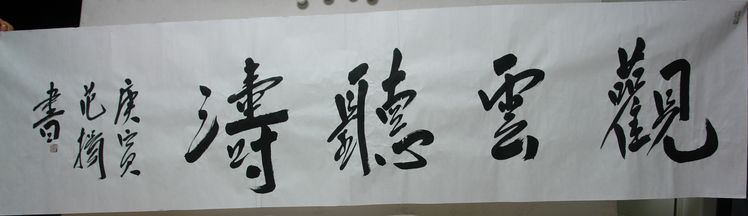 觀雲聽濤
庚寅
范㨄
書